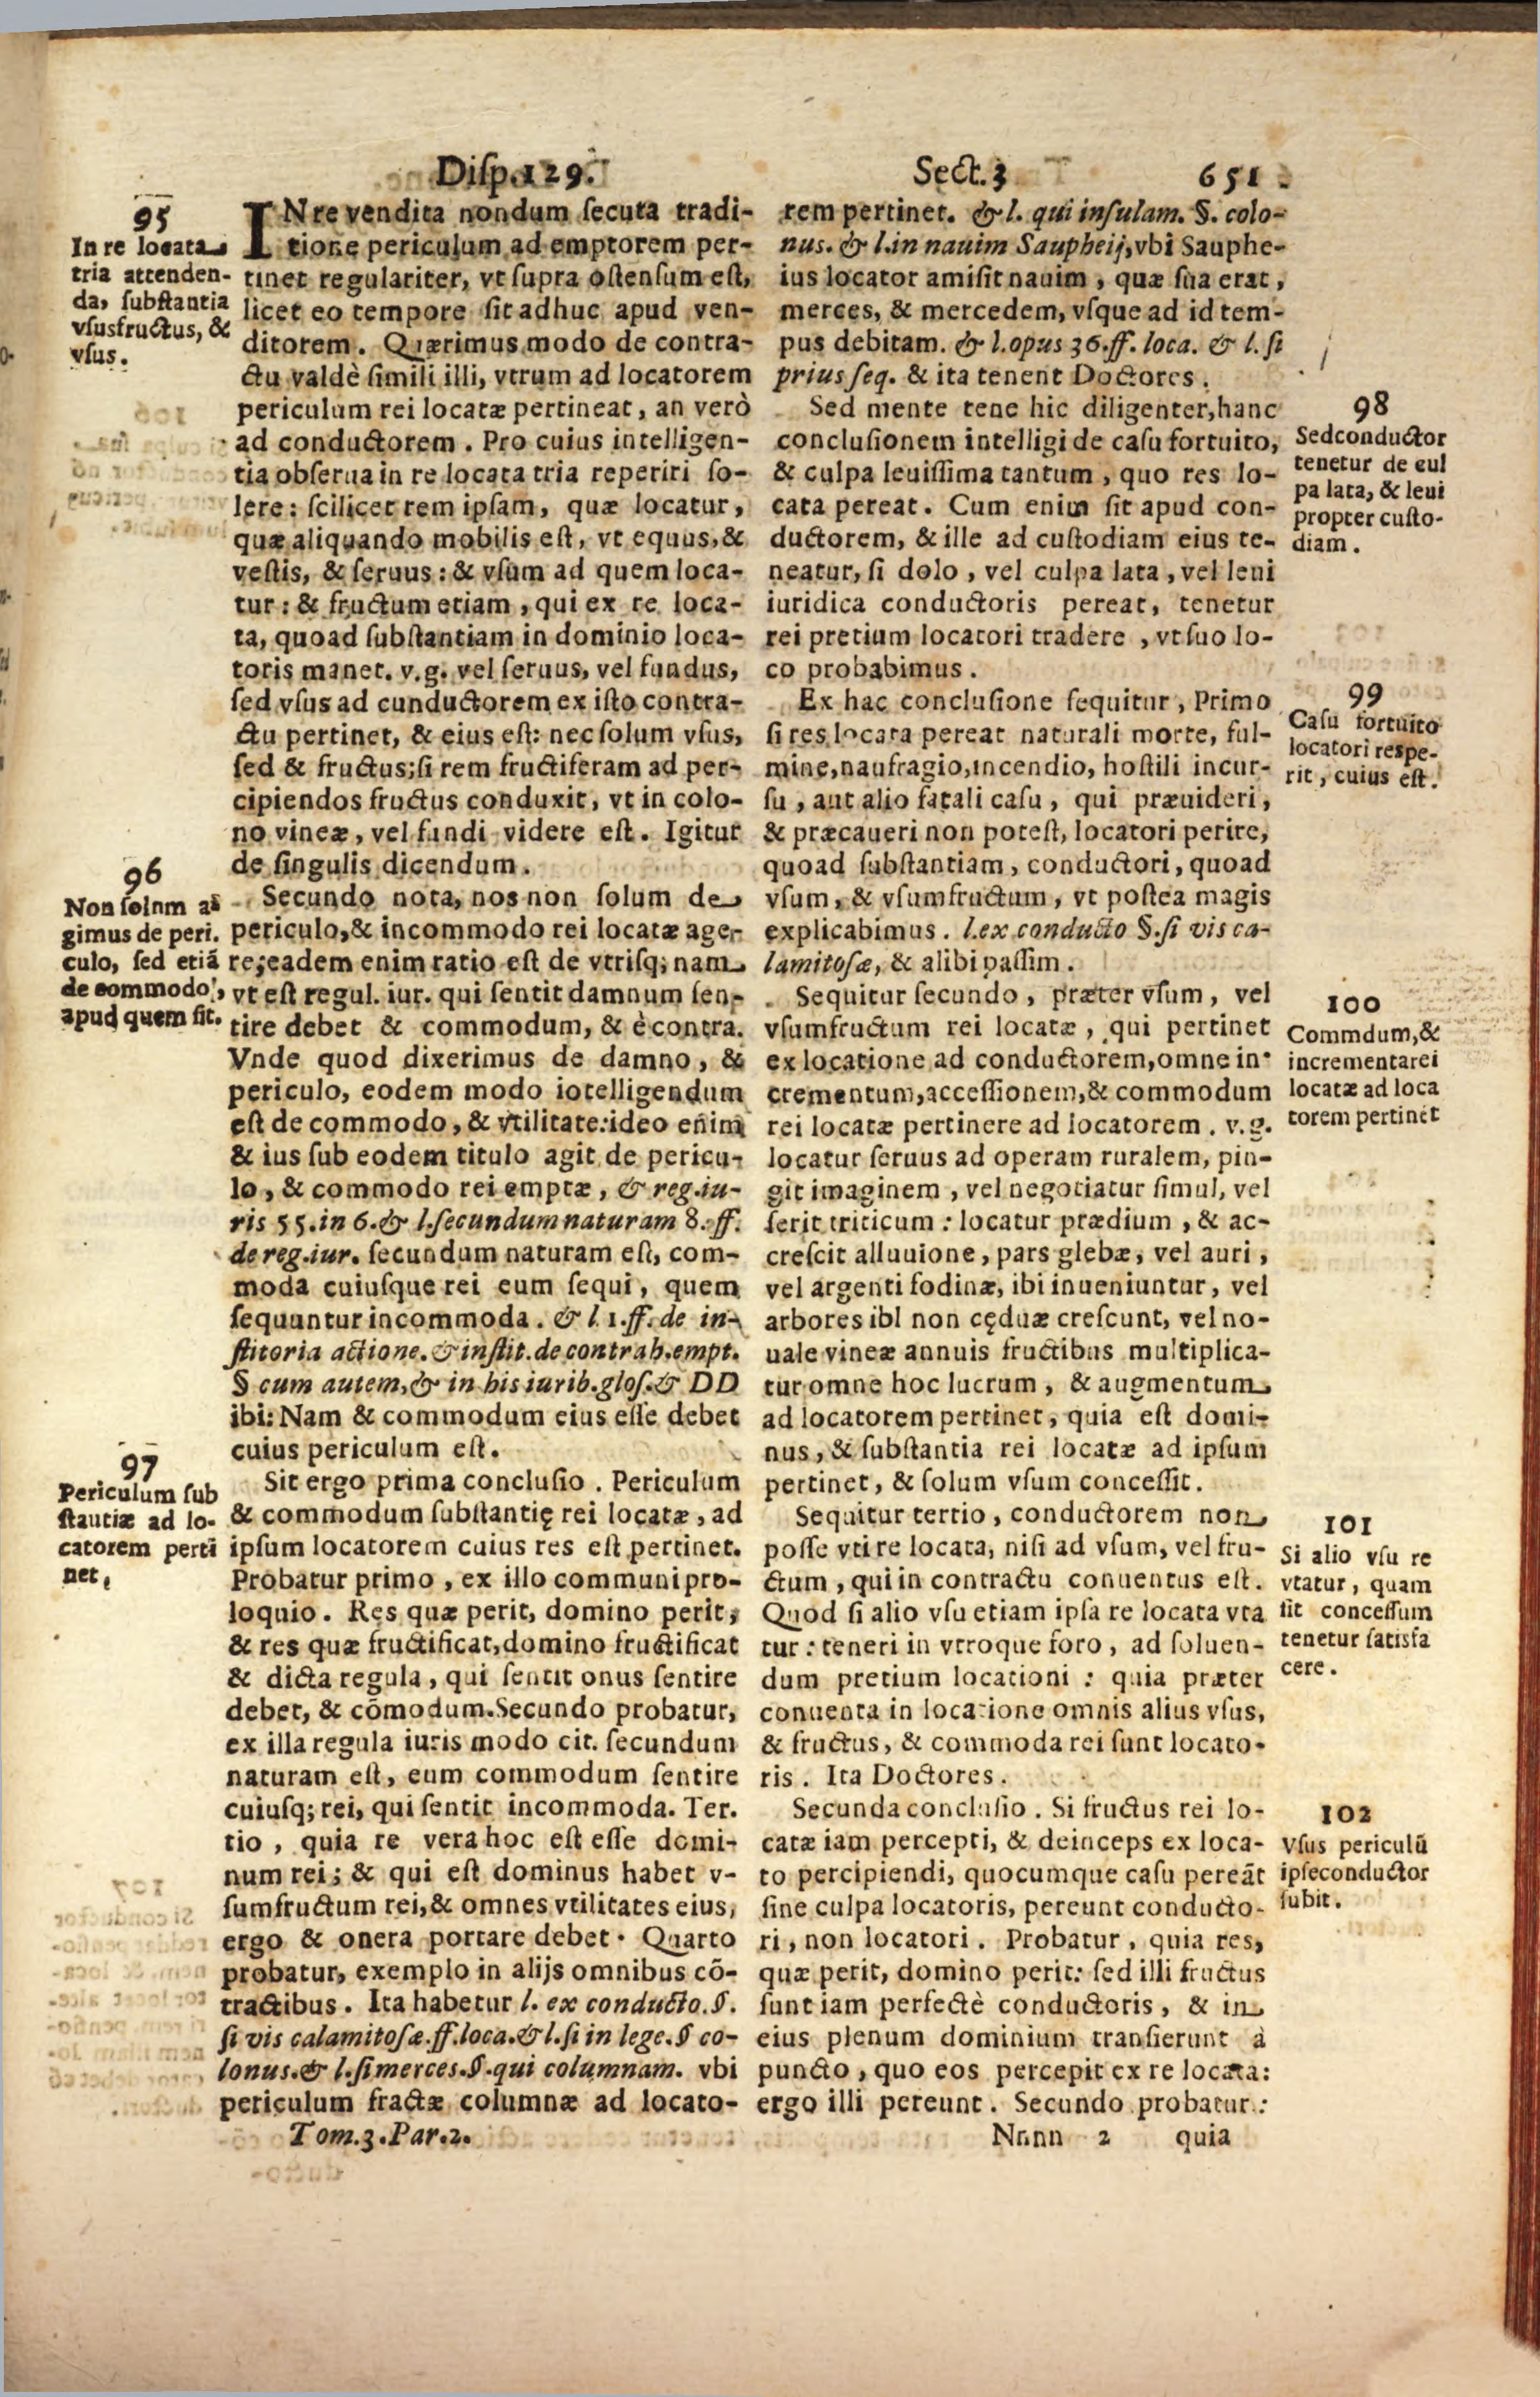 Diſp.129. Sect.3 651
95
In re locata
tria attenden-
da, ſubſtantia
vſusfructus, &
vſus.
IN re vendita nondum ſecuta tradi-
tione periculum ad emptorem per-
tinet regulariter, vt ſupra oſtenſum eſt,
licet eo tempore ſit adhuc apud ven-
ditorem. Quærimus modo de contra-
ctu valdè ſimili illi, vtrum ad locatorem
periculum rei locatæ pertineat, an verò
ad conductorem. Pro cuius intelligen-
tia obſerua in re locata tria reperiri ſo-
lere: ſcilicet rem ipſam, quæ locatur,
quæ aliquando mobilis eſt, vt equus, &
veſtis, & ſeruus: & vſum ad quem loca-
tur: & fructum etiam, qui ex re loca-
ta, quoad ſubſtantiam in dominio loca-
toris manet. v.g. vel ſeruus, vel fundus,
ſed vſus ad cunductorem ex iſto contra-
ctu pertinet, & eius eſt: nec ſolum vſus,
ſed & fructus; ſi rem fructiferam ad per-
cipiendos fructus conduxit, vt in colo-
no vineæ, vel fundi videre eſt. Igitur
de ſingulis dicendum.
96
Non ſolnm aḡ
gimus de peri.
culo, ſed etiã
de eommodo,
apud quem ſit.
Secundo nota, nos non ſolum de
periculo, & incommodo rei locatæ age-
re; eadem enim ratio eſt de vtriſq; nam
vt eſt regul. iur. qui ſentit damnum ſen-
tire debet & commodum, & è contra.
Vnde quod dixerimus de damno, &
periculo, eodem modo iotelligendum
eſt de commodo, & vtilitate: ideo enim
& ius ſub eodem titulo agit de pericu-
lo, & commodo rei emptæ, & reg. iu-
ris 55. in 6. & l. ſecundum naturam 8. ff.
de reg. iur. ſecundum naturam eſt, com-
moda cuiuſque rei eum ſequi, quem
ſequuntur incommoda. & l. 1. ff. de in-
ſtitoria actione. & inſtit. de contrah. empt.
§ cum autem, & in his iurib. gloſ. & DD
ibi: Nam & commodum eius eſſe debet
cuius periculum eſt.
97
Periculum ſub
ſtautiæ ad lo-
catorem perti
net,
Sit ergo prima concluſio. Periculum
& commodum ſubſtantię rei locatæ, ad
ipſum locatorem cuius res eſt pertinet.
Probatur primo, ex illo communi pro-
loquio. Res quæ perit, domino perit,
& res quæ fructificat, domino fructificat
& dicta regula, qui ſentit onus ſentire
debet, & cõmodum. Secundo probatur,
ex illa regula iuris modo cit. ſecundum
naturam eſt, eum commodum ſentire
cuiuſq; rei, qui ſentit incommoda. Ter.
tio, quia re vera hoc eſt eſſe domi-
num rei; & qui eſt dominus habet v-
ſumfructum rei, & omnes vtilitates eius,
ergo & onera portare debet. Quarto
probatur, exemplo in alijs omnibus cõ-
tractibus. Ita habetur l. ex conducto. §.
ſi vis calamitoſæ. ff. loca. & l. ſi in lege. § co-
lonus. & l. ſi merces. §. qui columnam. vbi
periculum fractæ columnæ ad locato-
Tom.3. Par.2.
rem pertinet. & l. qui inſulam. §. colo-
nus. & l. in nauim Saupheij, vbi Sauphe-
ius locator amiſit nauim, quæ ſua erat,
merces, & mercedem, vſque ad id tem-
pus debitam. & l. opus 36. ff. loca. & l. ſi
prius ſeq. & ita tenent Doctores.
98
Sed conductor
tenetur de cul
pa lata, & leui
propter cuſto-
diam.
Sed mente tene hic diligenter, hanc
concluſionem intelligi de caſu fortuito,
& culpa leuiſſima tantum, quo res lo-
cata pereat. Cum enim ſit apud con-
ductorem, & ille ad cuſtodiam eius te-
neatur, ſi dolo, vel culpa lata, vel leui
iuridica conductoris pereat, tenetur
rei pretium locatori tradere, vt ſuo lo-
co probabimus.
99
Caſu fortuito
locatori respe-
rit, cuius eſt.
Ex hac concluſione ſequitur, Primo
ſi res locata pereat naturali morte, ful-
mine, naufragio, incendio, hoſtili incur-
ſu, aut alio fatali caſu, qui præuideri,
& præcaueri non poteſt, locatori perire,
quoad ſubſtantiam, conductori, quoad
vſum, & vſumfructum, vt poſtea magis
explicabimus. l. ex conducto §. ſi vis ca-
lamitoſæ, & alibi paſſim.
100
Commdum, &
incrementa rei
locatæ ad loca
torem pertinet
Sequitur ſecundo, præter vſum, vel
vſumfructum rei locatæ, qui pertinet
ex locatione ad conductorem, omne in-
crementum, acceſſionem, & commodum
rei locatæ pertinere ad locatorem. v.g.
locatur ſeruus ad operam ruralem, pin-
git imaginem, vel negotiatur ſimul, vel
ſerit triticum: locatur prædium, & ac-
creſcit alluuione, pars glebæ, vel auri,
vel argenti fodinæ, ibi inueniuntur, vel
arbores ibI non cęduæ creſcunt, vel no-
uale vineæ annuis fructibus multiplica-
tur omne hoc lucrum, & augmentum
ad locatorem pertinet, quia eſt domi-
nus, & ſubſtantia rei locatæ ad ipſum
pertinet, & ſolum vſum conceſſit.
101
Si alio vſu re
vtatur, quam
ſit conceſſum
tenetur ſatisfa
cere.
Sequitur tertio, conductorem non
poſſe vti re locata, niſi ad vſum, vel fru-
ctum, qui in contractu conuentus eſt.
Quod ſi alio vſu etiam ipſa re locata vta
tur: teneri in vtroque foro, ad ſoluen-
dum pretium locationi: quia præter
conuenta in locatione omnis alius vſus,
& fructus, & commoda rei ſunt locato-
ris. Ita Doctores.
102
Vſus periculũ
ipſe conductor
ſubit.
Secunda concluſio. Si fructus rei lo-
catæ iam percepti, & deinceps ex loca-
to percipiendi, quocumque caſu pereãt
ſine culpa locatoris, pereunt conducto-
ri, non locatori. Probatur, quia res,
quæ perit, domino perit: ſed illi fructus
ſunt iam perfectè conductoris, & in
eius plenum dominium tranſierunt à
puncto, quo eos percepit ex re locata:
ergo illi pereunt. Secundo probatur:
Nnnn 2 quia